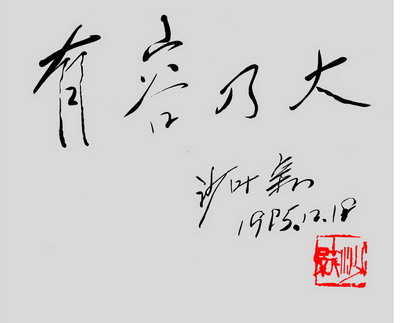 有容乃大
沙叶新
1985.12.18